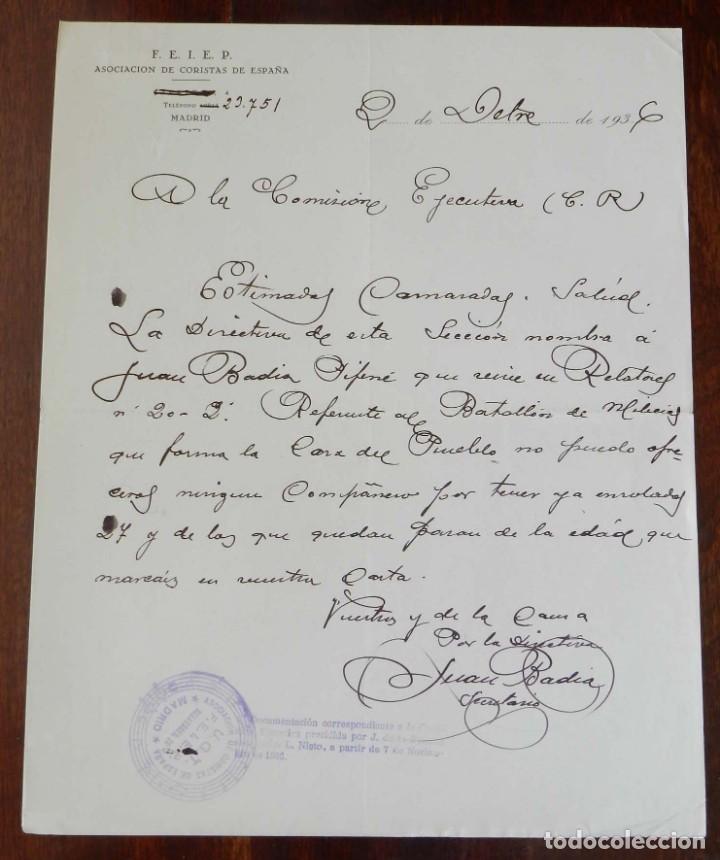 F. E. I. E. P.
ASOCIACION DE CORISTAS DE ESPAÑA
TELÉFONO 23.751
MADRID
2 de Octre de 1936
A la Comisión Ejecutiva (C. R)
Estimados Camaradas. Salúd.
La Directiva de esta Sección nombra á
Juan Badia que vive en Relatores
nº 20-2º. Referente al Batallón de Milicias
que forma la Casa del Pueblo no puedo ofre-
ceros ningun Compañero por tener ya enrolados
27 y de los que quedan pasan de la edad que
marcáis en vuestra Carta.
Vuestro y de la Causa
Por la Directiva
Juan Badia
Secretario
Documentación correspondiente a la
presidida por J.
L. Nieto, a partir de 7 de Noviem-
CORISTAS DE ESPAÑA ★ MADRID ★
U G T